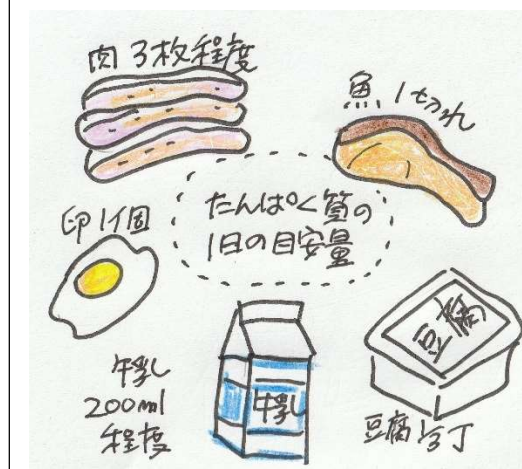 肉3枚程度
魚1切れ
たんぱく質の
1日の目安量
卵1個
牛乳
200ml
程度
牛乳
豆腐
豆腐1/3丁